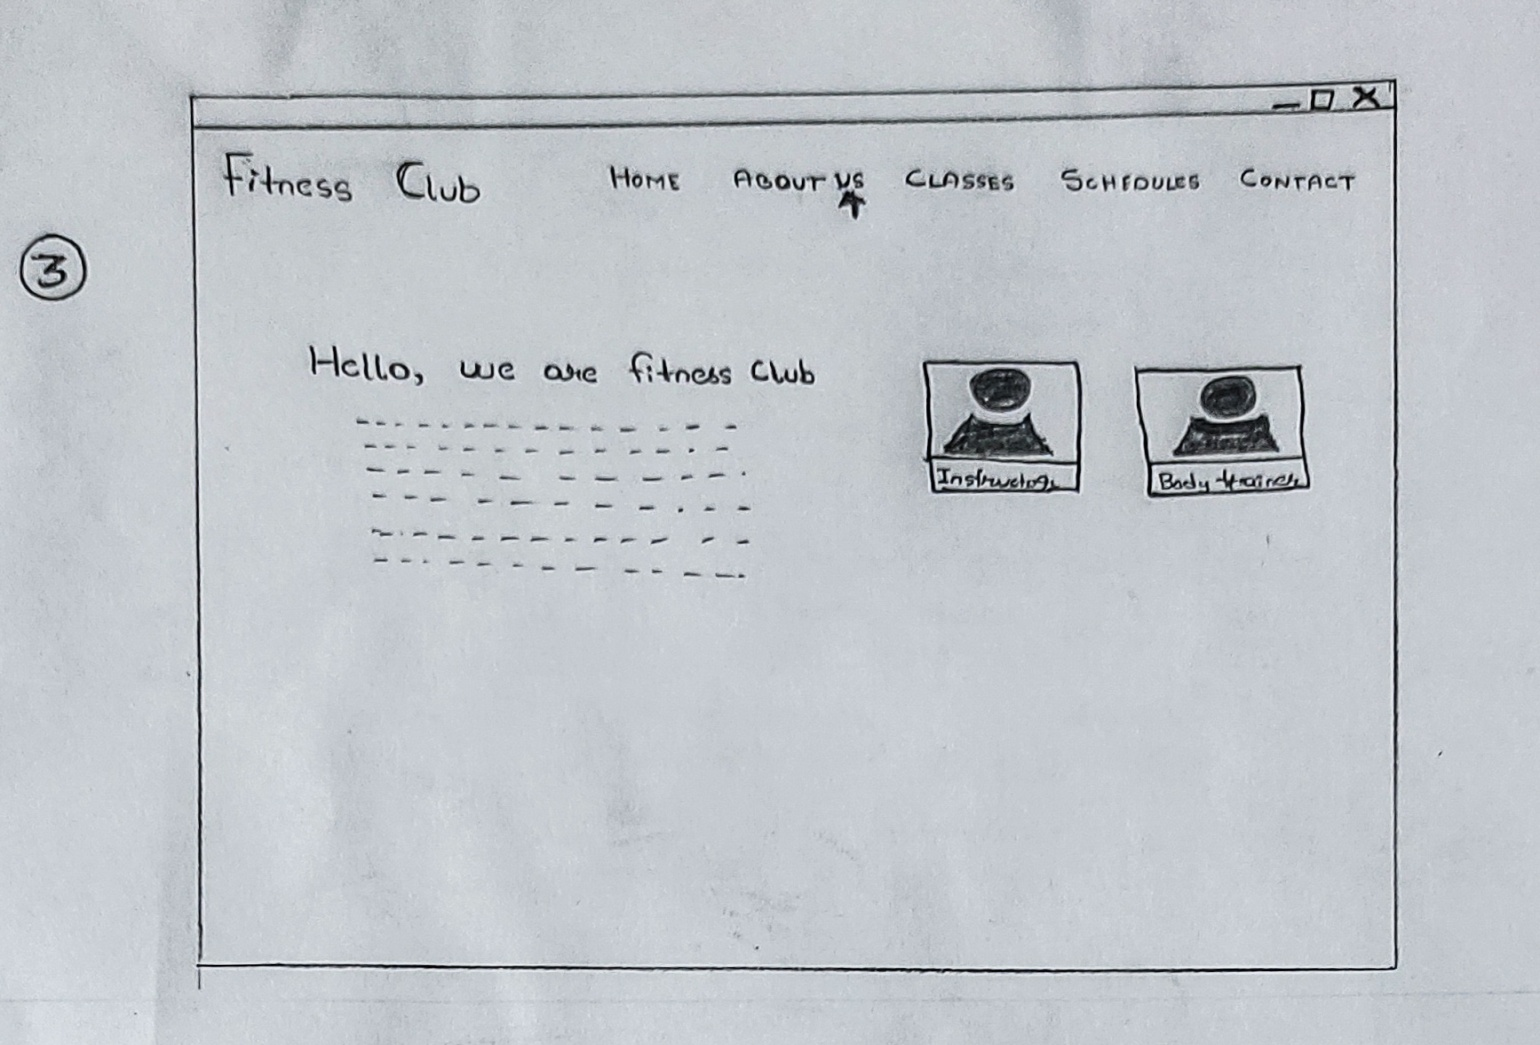 Fitness Club HOME ABOUT US CLASSES SCHEDULES CONTACT
3
Hello, we are fitness Club
Instructor Body trainer